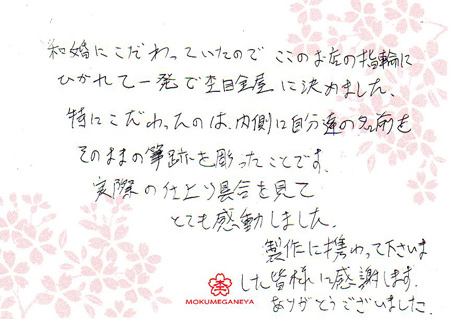 和婚にこだわっていたので ここのお店の指輪に
ひかれて一発で杢目金屋に決めました。
特にこだわったのは、内側に自分達の名前を
そのままの筆跡を彫ったことです。
実際の仕上り具合を見て
とても感動しました。
製作に携わって下さいま
した皆様に感謝します。
ありがとうございました。
杢
MOKUMEGANEYA